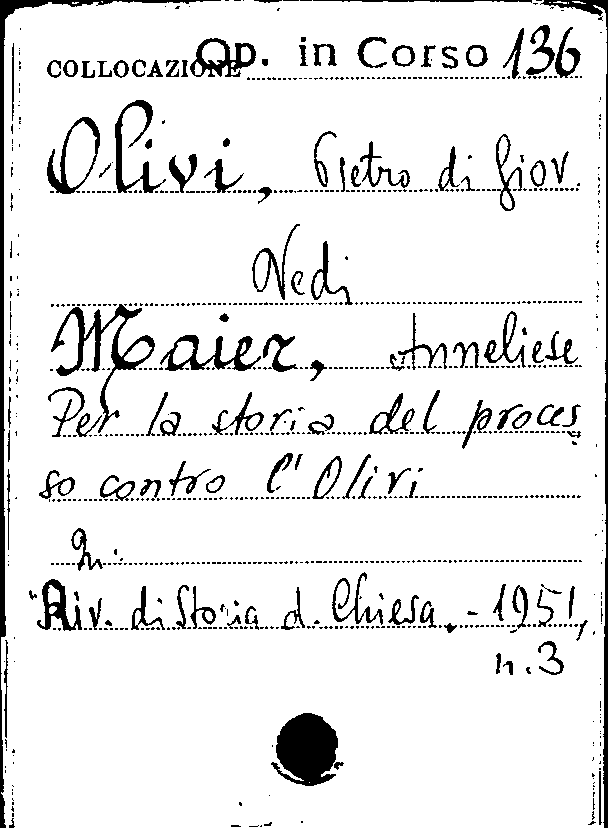 COLLOCAZIONE Op. in Corso 136
Olivi, Pietro di Giov.
Vedi
Maier, Anneliese
Per la storia del proces
so contro l'Olivi
In:
"Riv. di Storia d. Chiesa. - 1951,
n.3